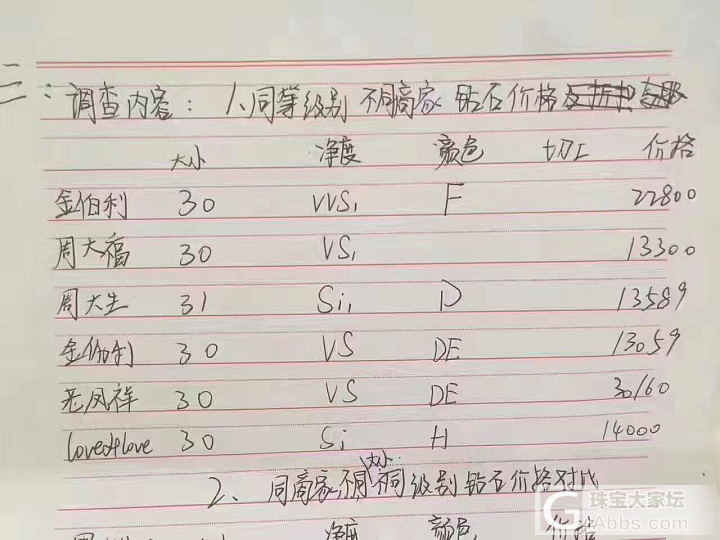 三：调查内容：1、同等级别 不同商家 钻石价格
大小 净度 颜色 切工 价格
金伯利 30 VVS1 F 22800
周大福 30 VS1 13300
周大生 31 Si1 D 13589
金伯利 30 VS DE 13059
老凤祥 30 VS DE 30160
love&love 30 Si H 14000
2、同商家不同大小不同级别钻石价格对比
净度 颜色 价格
珠宝大家坛
GAbbs.com